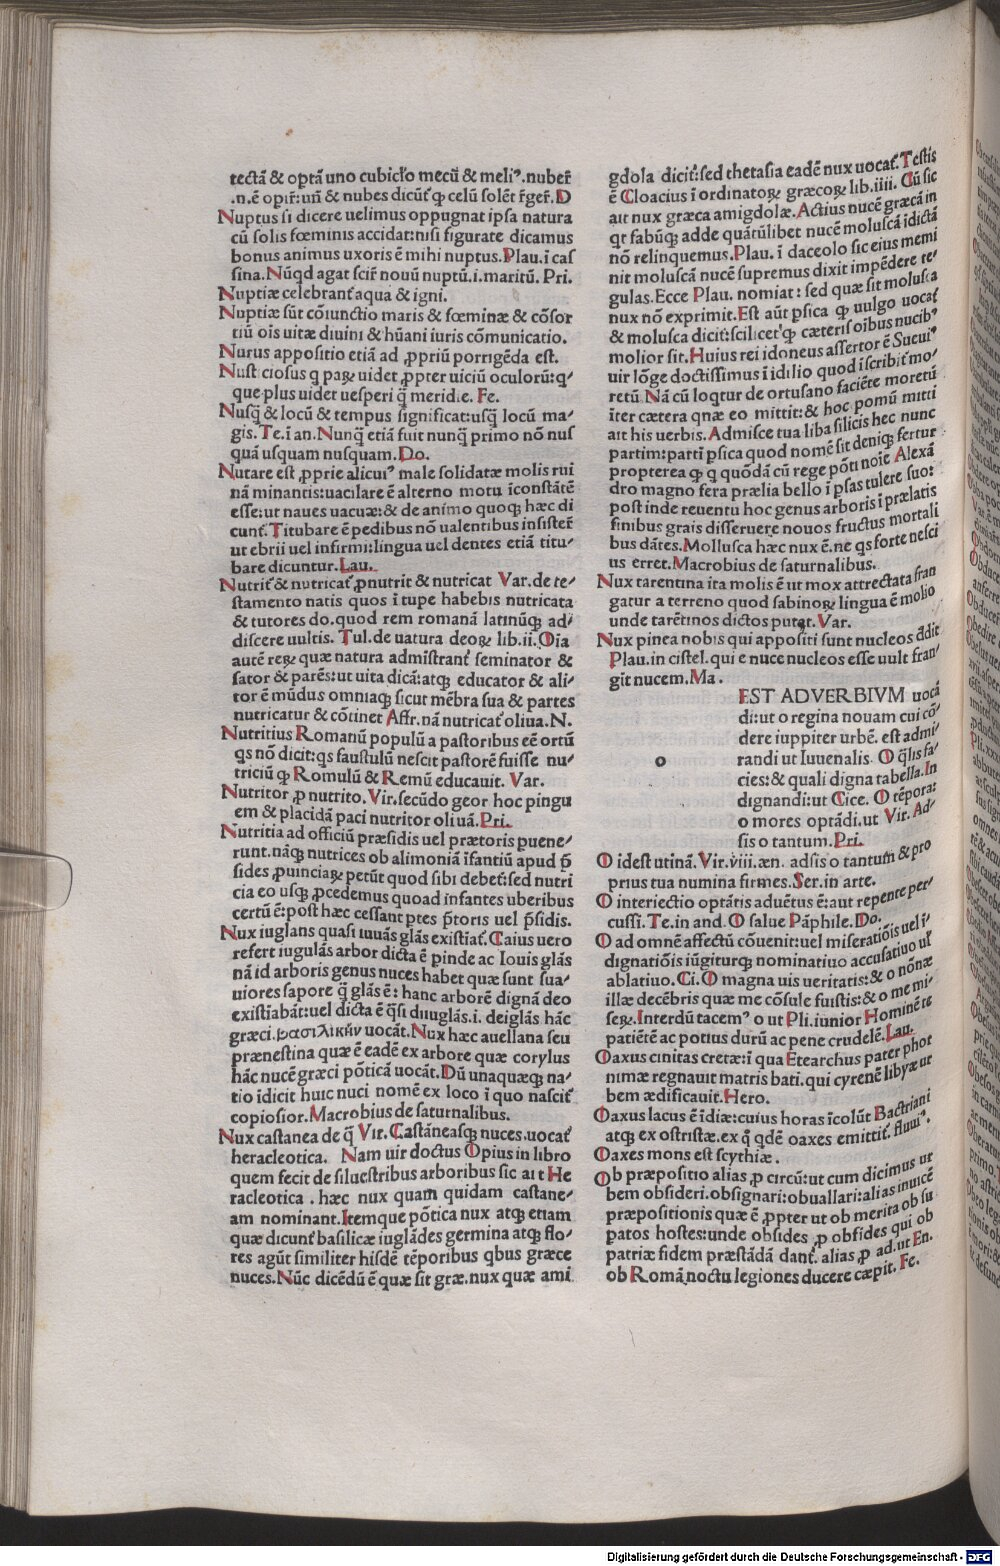 tectã & optã uno cubicło mecũ & meliꝰ.nuber̃
.n.ẽ opir̃:uñ & nubes dicũt̃ ꝙ celũ solẽt r̃ger̃.D
Nuptus si dicere uelimus oppugnat ipsa natura
cũ solis fœminis accidat:nisi figurate dicamus
bonus animus uxoris ẽ mihi nuptus.Plau.ĩ cas
sina.Nũqd agat scir̃ nouũ nuptũ.i.maritũ. Pri.
Nuptiæ celebrant̃ aqua & igni.
Nuptiæ sũt cõiunctio maris & fœminæ & cõsor
tiũ oĩs uitæ diuini & hũani iuris cõmunicatio.
Nurus appositio etiã ad ꝓpriũ porrigẽda est.
Nust ciosus q paꝝ uidet ꝓpter uiciũ oculorũ:q⸗
que plus uidet uesperi q̃ meridie. Fe.
Nusq̃ & locũ & tempus significat:usq̃ locũ ma⸗
gis.Te.ĩ an.Nunq̃ etiã fuit nunq̃ primo nõ nus
quã usquam nusquam.Do.
Nutare est ꝓprie alicuiꝰ male solidatæ molis rui
nã minantis:uacilare ẽ alterno motu ĩconstãtẽ
esse:ut naues uacuæ:& de animo quoqꝫ hæc di
cunt̃.Titubare ẽ pedibus nõ ualentibus insister̃
ut ebrii uel infirmi:lingua uel dentes etiã titu⸗
bare dicuntur.Lau.
Nutrit̃ & nutricat̃ ꝓnutrit & nutricat Var.de te⸗
stamento natis quos ĩ tupe habebis nutricata
& tutores do.quod rem romanã latinũqꝫ ad⸗
discere uultis. Tul.de uatura deoꝝ lib.ii.Oĩa
autẽ reꝝ quæ natura admĩstrant̃ seminator &
sator & parẽs:ut uita dicã:atqꝫ educator & ali⸗
tor ẽ mũdus omniaqꝫ sicut mẽbra sua & partes
nutricatur & cõtinet Affr.nã nutricat̃ oliua.N.
Nutritius Romanũ populũ a pastoribus eẽ ortũ
qs nõ dicit:qs faustulũ nescit pastorẽ fuisse nu⸗
triciũ ꝙ Romulũ & Remũ educauit. Var.
Nutritor ꝓ nutrito. Vir.secũdo geor hoc pingu
em & placidã paci nutritor oliuã.Pri.
Nutritia ad officiũ præsidis uel prætoris puene⸗
runt.nãqꝫ nutrices ob alimoniã ĩfantiũ apud p̃
sides ꝓuinciaꝝ petũt quod sibi debet̃:sed nutri
cia eo usqꝫ ꝓcedemus quoad infantes uberibus
certũ ẽ:post hæc cessant ptes p̃toris uel p̃sidis.
Nux iuglans quasi iuuãs glãs existiat̃.Caius uero
refert iugulãs arbor dicta ẽ pinde ac Iouis glãs
nã id arboris genus nuces habet quæ sunt sua⸗
uiores sapore q̃ glãs ẽ: hanc arborẽ dignã deo
existiabãt:uel dicta ẽ q̃si diiuglãs.i. deiglãs hãc
græci.βασιλικὴν uocãt.Nux hæc auellana seu
prænestina quæ ẽ eadẽ ex arbore quæ corylus
hãc nucẽ græci põticã uocãt.Dũ unaquæqꝫ na⸗
tio idicit huic nuci nomẽ ex loco ĩ quo nascit̃
copiosior.Macrobius de saturnalibus.
Nux castanea de q̃ Vir.Castãneasqꝫ nuces.uocat̃
heracleotica. Nam uir doctus Opius in libro
quem fecit de siluestribus arboribus sic ait He
racleotica .hæc nux quam quidam castane⸗
am nominant.Itemque põtica nux atqꝫ etiam
quæ dicunt̃ basilicæ iuglãdes germina atqꝫ flo⸗
res agũt similiter hisdẽ tẽporibus qbus græce
nuces.Nũc dicẽdũ ẽ quæ sit græ.nux quæ ami
gdola dicit̃:sed thetasia eadẽ nux uocat̃.Testis
ẽ Cloacius ĩ ordinatoꝝ græcoꝝ lib.iiii. Cũ sic
ait nux græca amigdolæ.Actius nucẽ græcã in
qt fabũqꝫ adde quãtũlibet nucẽ moluscã idictã
nõ relinquemus.Plau. ĩ daceolo sic eius memi
nit moluscã nucẽ supremus dixit impẽdere te⸗
gulas.Ecce Plau. nomiat: sed quæ sit molusca
nux nõ exprimit.Est aũt psica ꝙ uulgo uocat̃
& molusca dicit̃:scilicet ꝙ cæteris oibus nucibꝰ
molior sit.Huius rei idoneus assertor ẽ Sueuiꝰ
uir lõge doctissimus ĩ idilio quod ĩscribit̃ mo⸗
retũ. Nã cũ loqtur de ortusano faciẽte moretũ
ĩter cætera qnæ eo mittit:& hoc pomũ mitti
ait his uerbis. Admisce tua liba silicis hec nunc
partim:parti psica quod nomẽ sit deniqꝫ fertur
propterea ꝙ q quõdã cũ rege põti noie Alexã
dro magno fera prælia bello ĩ psas tulere suo:
post inde reuentu hoc genus arboris ĩ prælatis
finibus grais disseruere nouos fructus mortali
bus dãtes.Mollusca hæc nux ẽ.ne qs forte nesci
us erret.Macrobius de saturnalibus.
Nux tarentina ita molis ẽ ut mox attrectata fran
gatur a terreno quod sabinoꝝ lingua ẽ molio
unde tarẽtinos dictos putat. Var.
Nux pinea nobis qui appositi sunt nucleos ãdit̃
Plau.in cistel.qui e nuce nucleos esse uult fran⸗
git nucem.Ma.
o
EST ADVERBIVM uocã
di:ut o regina nouam cui cõ⸗
dere iuppiter urbẽ. est admi⸗
randi ut Iuuenalis. O q̃lis fa⸗
cies:& quali digna tabella.In
dignandi:ut Cice. O tẽpora:
o mores optãdi.ut Vir. Ad⸗
sis o tantum.Pri.
O idest utinã. Vir.viii.æn. adsis o tantum & pro
prius tua numina firmes. Ser.in arte.
O interiectio optãtis aduẽtus ẽ:aut repente per⸗
cussi. Te.in and. O salue Pãphile.Do.
O ad omnẽ affectũ cõuenit:uel miseratiõis uel ĩ⸗
dignatiõis iũgiturqꝫ nominatiuo accusatiuo ul̃
ablatiuo.Ci.O magna uis ueritatis:& o nõnæ
illæ decẽbris quæ me cõsule fuistis:& o me mi⸗
seꝝ.Interdũ tacemꝰ o ut Pli.iunior Hominẽ te
patiẽtẽ ac potius durũ ac pene crudelẽ.Lau.
Oaxus cinitas cretæ:ĩ qua Etearchus pater phor
nimæ regnauit matris bati.qui cyrenẽ libyæ ur
bem ædificauit.Hero.
Oaxus lacus ẽ ĩdiæ:cuius horas ĩcolũt Bactriani
atqꝫ ex ostristæ.ex q̃ qdẽ oaxes emittit̃. fluuiꝰ.
Oaxes mons est scythiæ.
Ob præpositio alias ꝓ circũ:ut cum dicimus ur
bem obsideri.obsignari:obuallari:alias inuicẽ
præpositionis quæ ẽ ꝓpter ut ob merita ob su
patos hostes:unde obsides ꝓ obfides qui ob
patriæ fidem præstãdã dant̃. alias ꝓ ad.ut En.
ob Romã noctu legiones ducere cæpit. Fe.
Digitalisierung gefördert durch die Deutsche Forschungsgemeinschaft - DFG